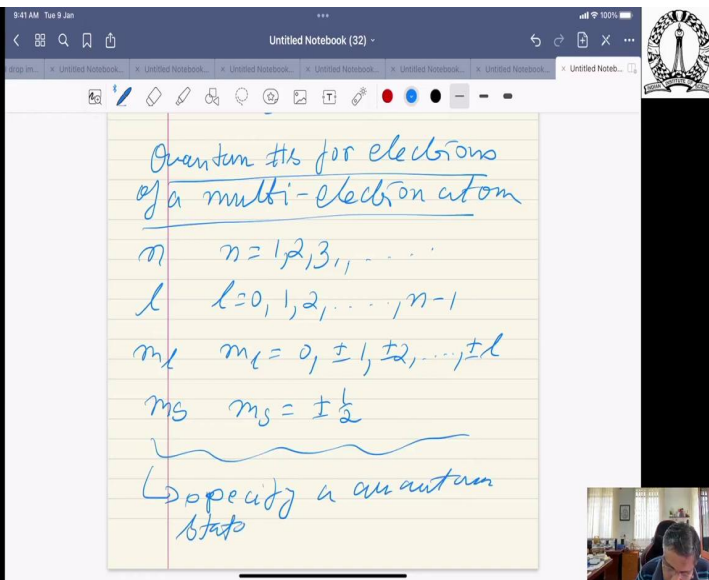 9:41 AM Tue 9 Jan
100%
Untitled Notebook (32)
drop im... × Untitled Notebook... × Untitled Notebook... × Untitled Notebook... × Untitled Notebook... × Untitled Notebook... × Untitled Notebook... × Untitled Noteb...
Quantum #s for electrons
of a multi-electron atom
n n = 1, 2, 3, , . . . . .
l l = 0, 1, 2, . . . . , n-1
ml ml = 0, ±1, ±2, . . . , ±l
ms ms = ± 1/2
↳ specify a quantum
state